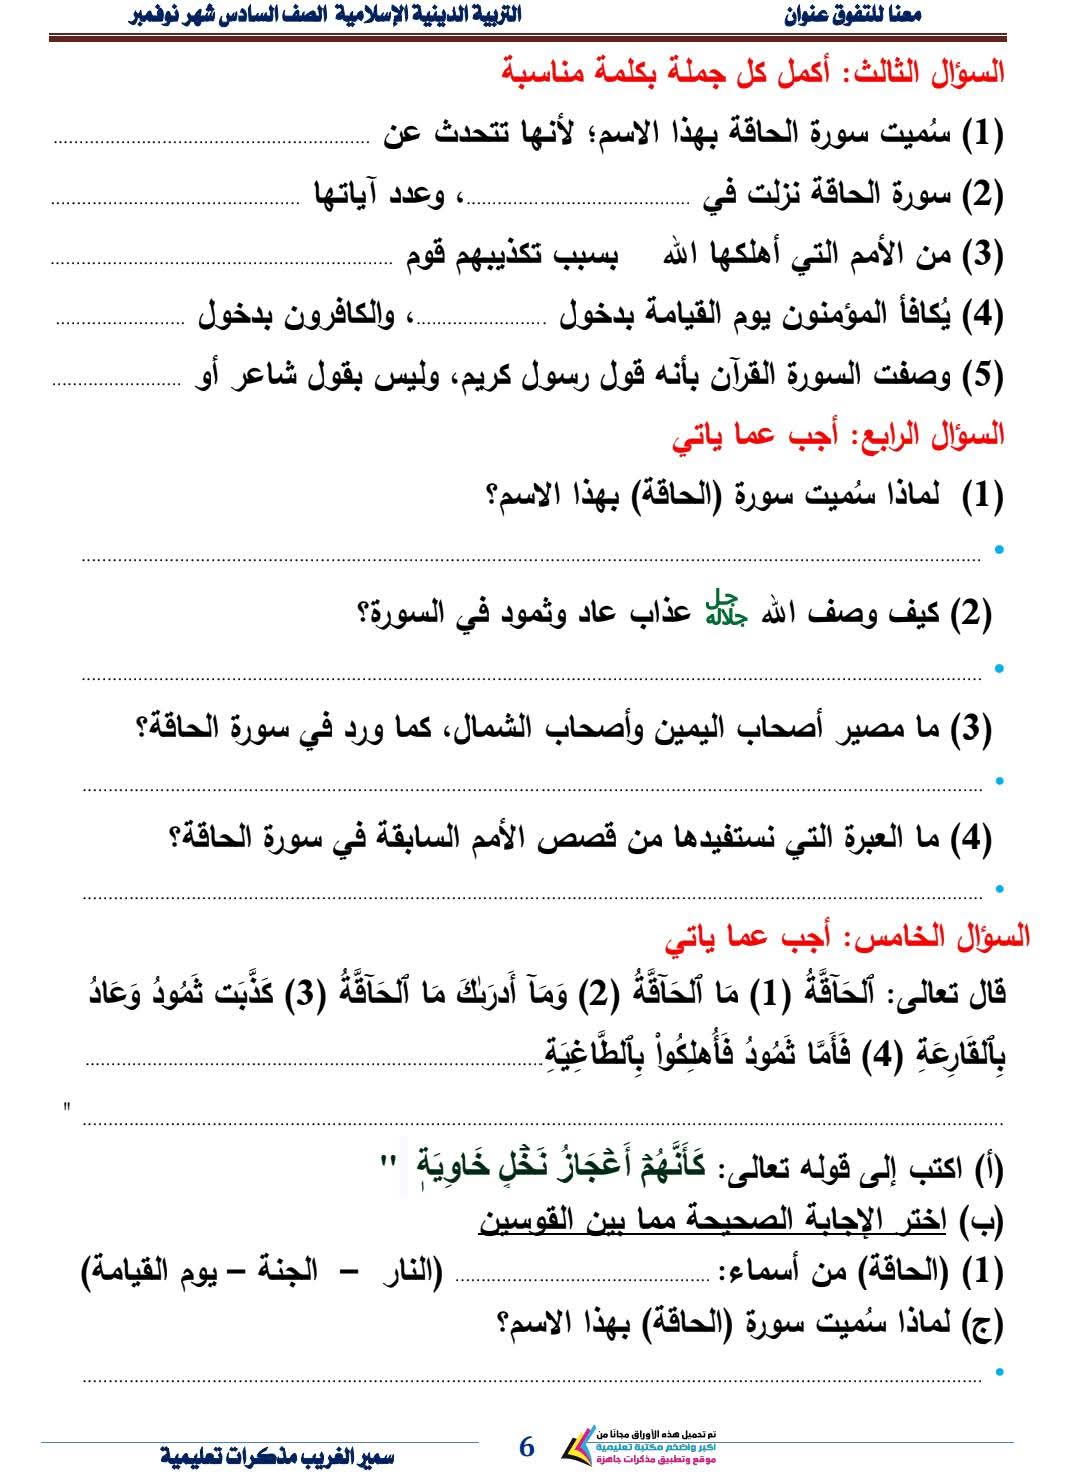 معنا للتفوق عنوان التربية الدينية الإسلامية الصف السادس شهر نوفمبر
السؤال الثالث: أكمل كل جملة بكلمة مناسبة
(1) سُميت سورة الحاقة بهذا الاسم؛ لأنها تتحدث عن ..............................
(2) سورة الحاقة نزلت في ..............................، وعدد آياتها ..............................
(3) من الأمم التي أهلكها الله بسبب تكذيبهم قوم ..............................
(4) يُكافأ المؤمنون يوم القيامة بدخول ....................، والكافرون بدخول ....................
(5) وصفت السورة القرآن بأنه قول رسول كريم، وليس بقول شاعر أو ....................
السؤال الرابع: أجب عما ياتي
(1) لماذا سُميت سورة (الحاقة) بهذا الاسم؟
• ..............................
(2) كيف وصف الله جل جلاله عذاب عاد وثمود في السورة؟
• ..............................
(3) ما مصير أصحاب اليمين وأصحاب الشمال، كما ورد في سورة الحاقة؟
• ..............................
(4) ما العبرة التي نستفيدها من قصص الأمم السابقة في سورة الحاقة؟
• ..............................
السؤال الخامس: أجب عما ياتي
قال تعالى: ٱلحَآقَّةُ (1) مَا ٱلحَآقَّةُ (2) وَمَآ أَدرَىٰكَ مَا ٱلحَآقَّةُ (3) كَذَّبَت ثَمُودُ وَعَادُ
بِٱلقَارِعَةِ (4) فَأَمَّا ثَمُودُ فَأُهلِكُواْ بِٱلطَّاغِيَةِ..............................
.............................. "
(أ) اكتب إلى قوله تعالى: كَأَنَّهُمْ أَعْجَازُ نَخْلٍ خَاوِيَةٍ "
(ب) اختر الإجابة الصحيحة مما بين القوسين
(1) (الحاقة) من أسماء: .............................. (النار – الجنة – يوم القيامة)
(ج) لماذا سُميت سورة (الحاقة) بهذا الاسم؟
• ..............................
تم تحميل هذه الأوراق مجانا من
اكبر واضخم مكتبة تعليمية
موقع وتطبيق مذكرات جاهزة
6
سمير الغريب مذكرات تعليمية